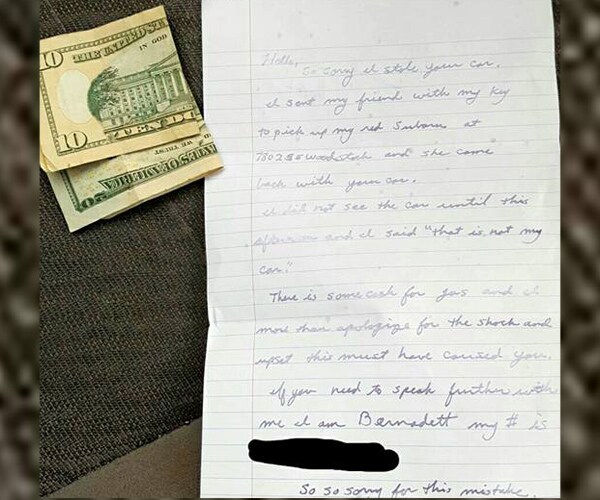 10
THE UNITED STA
IN GOD
10
TEN DO
WE TRUST
ATES OF AMERICA
Hello,
So sorry I stole your car.
I sent my friend with my key
to pick up my red Subaru at
7802 SE Woodstock and she came
back with your car.
I did not see the car until this
afternoon and I said "that is, not my
car."
There is some cash for gas and I
more than apologize for the shock and
upset this must have caused you.
If you need to speak further with
me I am Bernadett my # is
So so sorry for this mistake.